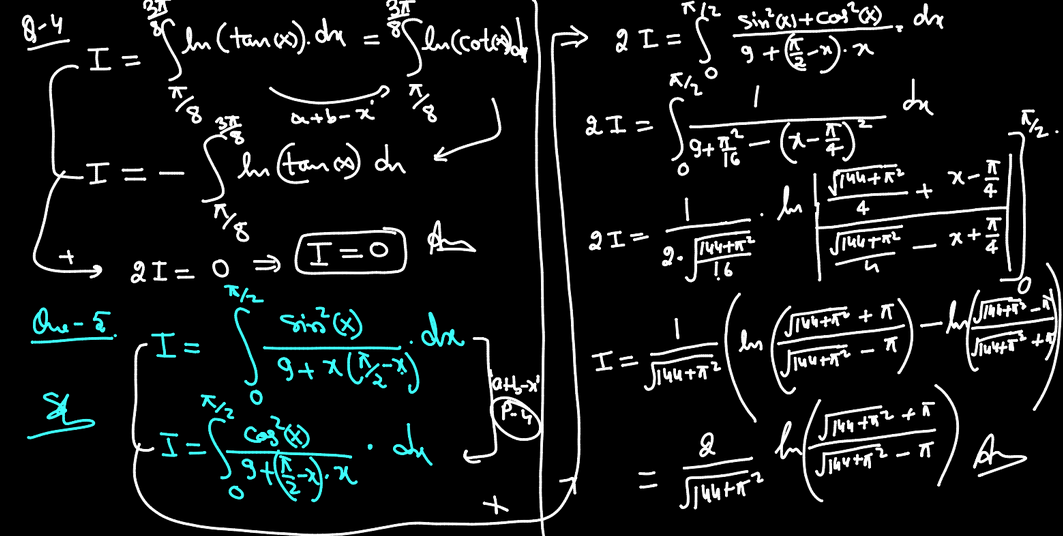 Q-4
I = ∫_{π/8}^{3π/8} ln (tan(x)). dx = ∫_{π/8}^{3π/8} ln(cot(x)) dx
a+b-x'
I = - ∫_{π/8}^{3π/8} ln (tan(x)) dx
+ 2I = 0 ⇒ I = 0 Ans
Que-5.
Sol
I = ∫_0^{π/2} sin²(x) / (9 + x(π/2 - x)) . dx
'a+b-x'
P-4
I = ∫_0^{π/2} cos²(x) / (9 + (π/2 - x). x) . dx
+
→ 2I = ∫_0^{π/2} (sin²(x) + cos²(x)) / (9 + (π/2 - x). x) . dx
2I = ∫_0^{π/2} 1 / (9 + π²/16 - (x - π/4)²) dx
2I = 1 / (2. √((144+π²)/16)) . ln | (√(144+π²)/4 + x - π/4) / (√(144+π²)/4 - x + π/4) | ]_0^{π/2}.
I = 1/√(144+π²) ( ln ( (√(144+π²) + π) / (√(144+π²) - π) ) - ln ( (√(144+π²) - π) / (√(144+π²) + π) ) )
= 2/√(144+π²) ln ( (√(144+π²) + π) / (√(144+π²) - π) ) Ans